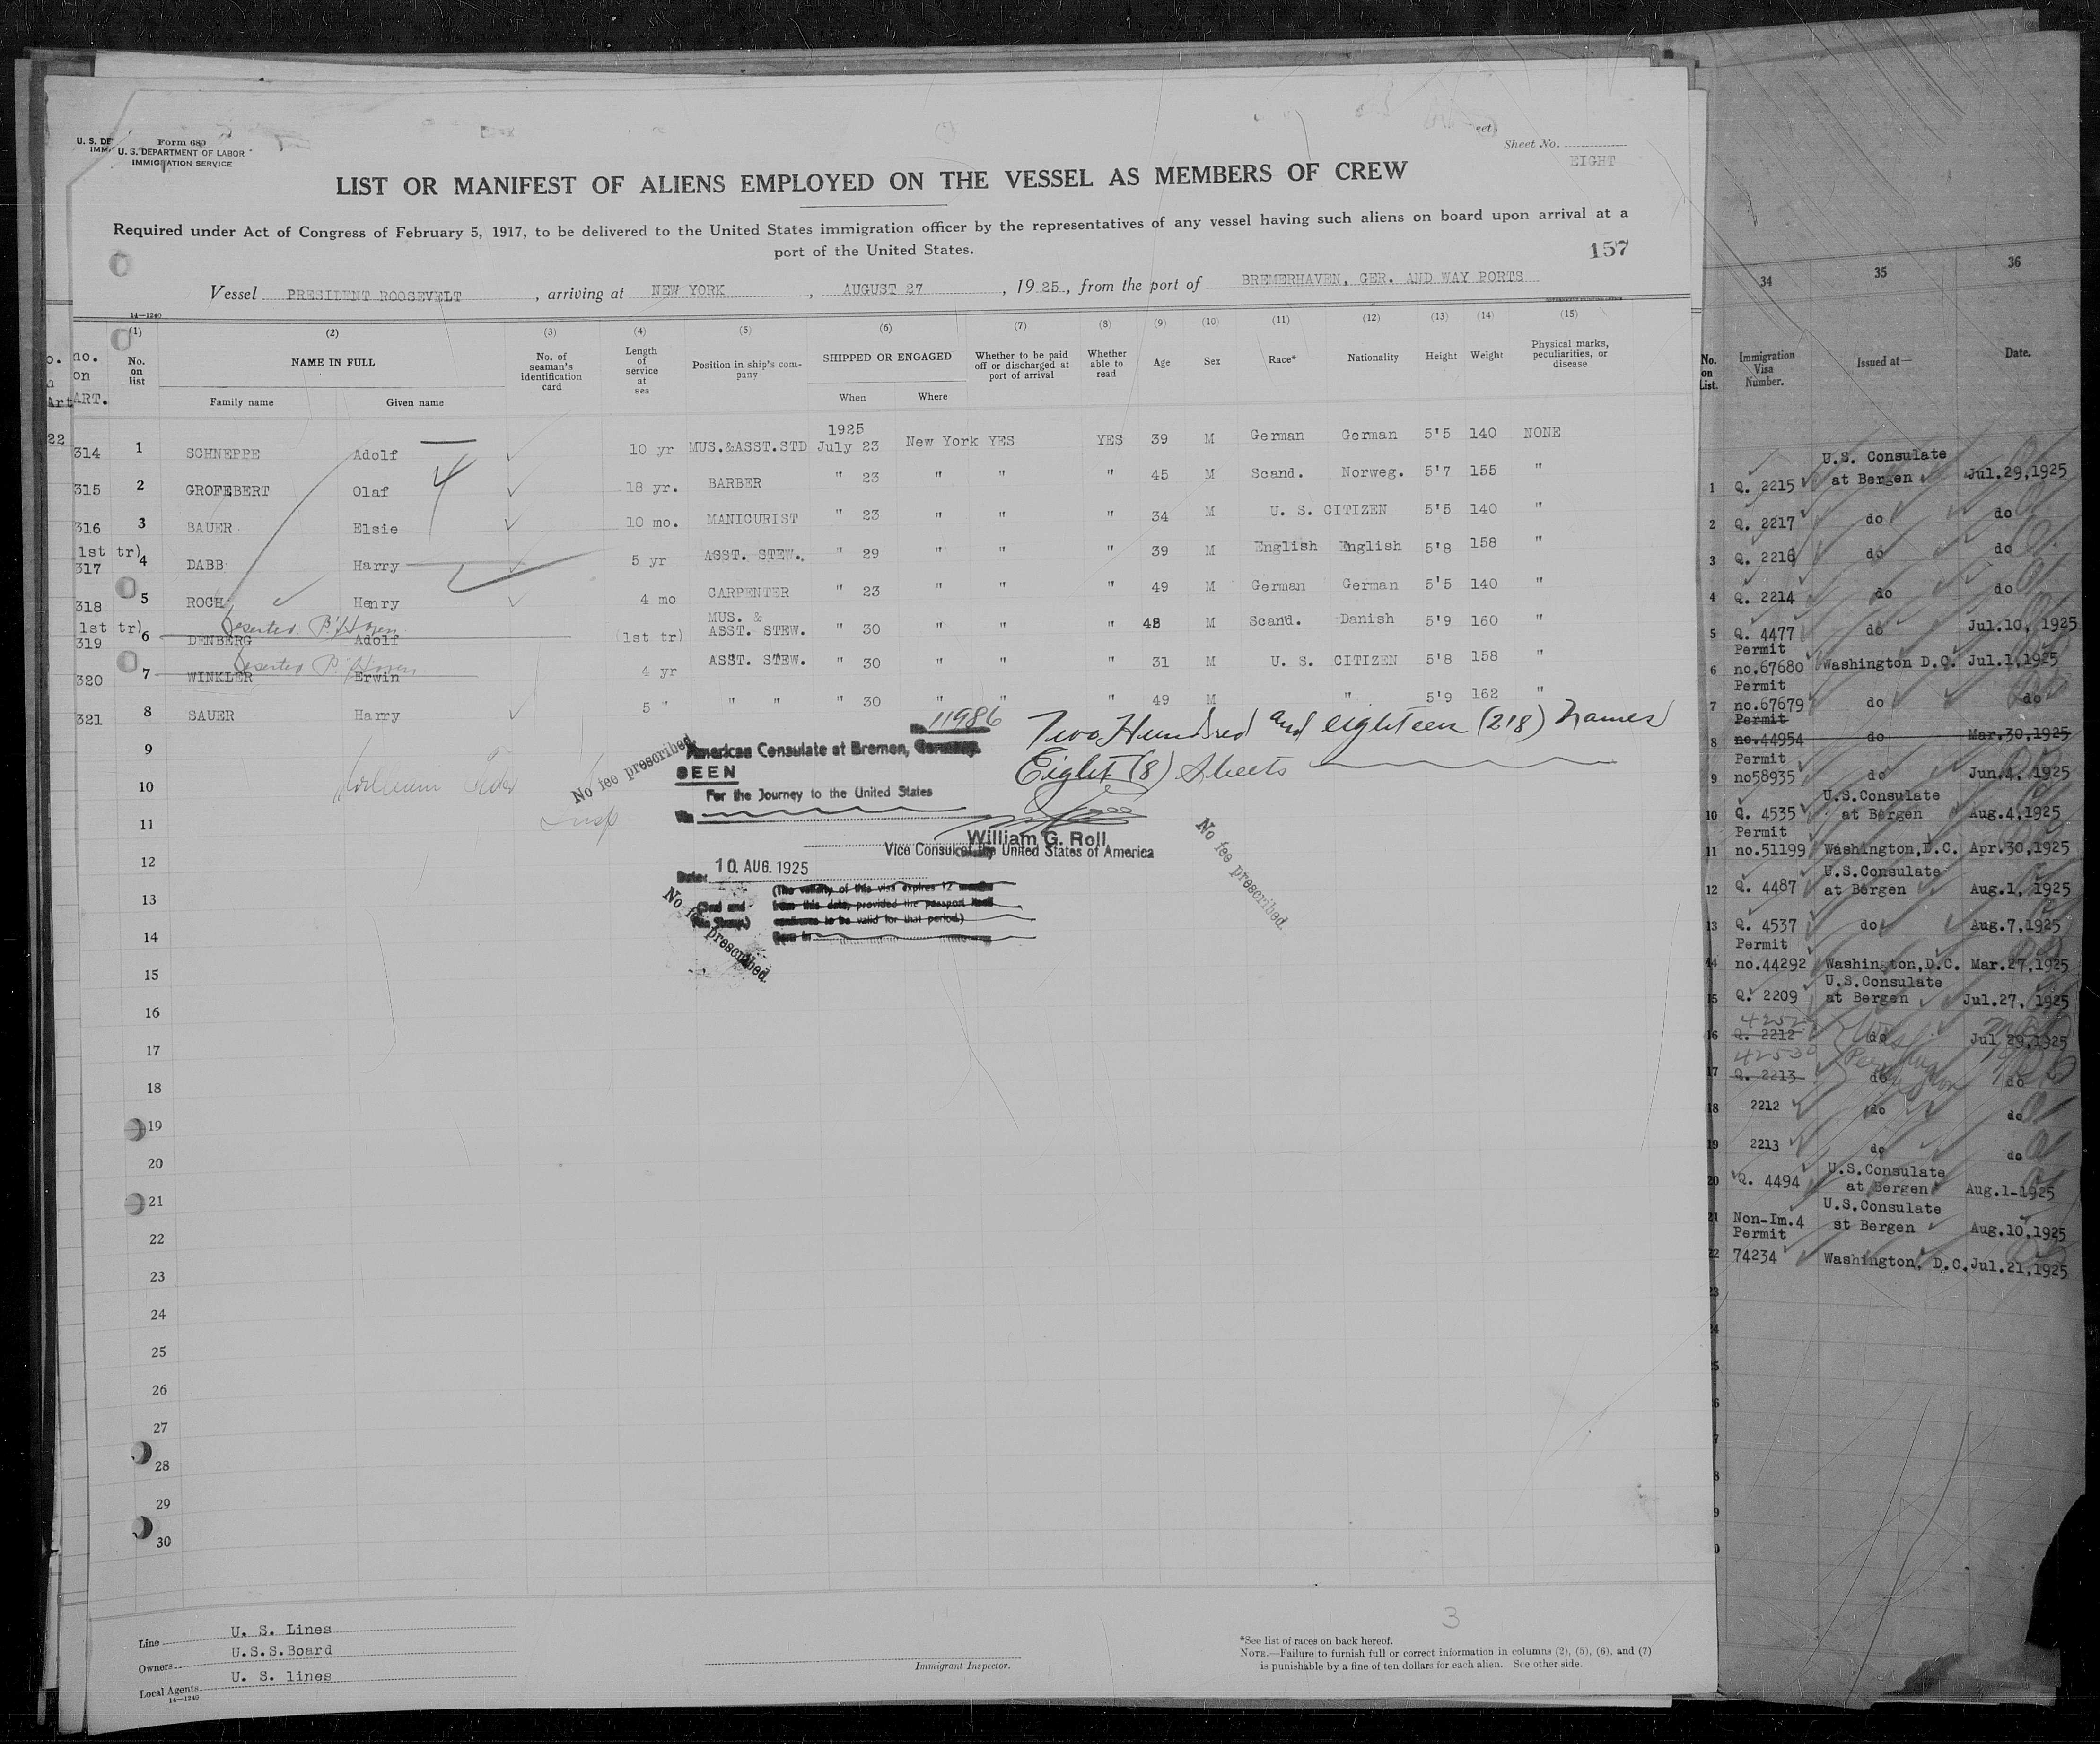 Form 680
U. S. DEPARTMENT OF LABOR
IMMIGRATION SERVICE
Sheet No.
EIGHT
LIST OR MANIFEST OF ALIENS EMPLOYED ON THE VESSEL AS MEMBERS OF CREW
Required under Act of Congress of February 5, 1917, to be delivered to the United States immigration officer by the representatives of any vessel having such aliens on board upon arrival at a
port of the United States.
157
Vessel PRESIDENT ROOSEVELT, arriving at NEW YORK, AUGUST 27, 1925, from the port of BREMERHAVEN, GER. AND WAY PORTS
14—1240
(1) (2) (3) (4) (5) (6) (7) (8) (9) (10) (11) (12) (13) (14) (15)
no. on ART.
No. on list
NAME IN FULL
Family name
Given name
No. of seaman's identification card
Length of service at sea
Position in ship's company
SHIPPED OR ENGAGED
When
Where
Whether to be paid off or discharged at port of arrival
Whether able to read
Age
Sex
Race*
Nationality
Height
Weight
Physical marks, peculiarities, or disease
1925
314 1 SCHNEPPE Adolf 10 yr MUS.&ASST.STD July 23 New York YES YES 39 M German German 5'5 140 NONE
4
315 2 GROFEBERT Olaf 18 yr. BARBER " 23 " " " 45 M Scand. Norweg. 5'7 155 "
316 3 BAUER Elsie 10 mo. MANICURIST " 23 " " " 34 M U. S. CITIZEN 5'5 140 "
1st tr)
317 4 DABB Harry 5 yr ASST. STEW. " 29 " " " 39 M English English 5'8 158 "
318 5 ROCH Henry 4 mo CARPENTER " 23 " " " 49 M German German 5'5 140 "
Deserted B'Haven
1st tr)
319 6 DENBERG Adolf (1st tr) MUS. & ASST. STEW. " 30 " " " 48 M Scand. Danish 5'9 160 "
Deserted B'Haven
320 7 WINKLER Erwin 4 yr ASST. STEW. " 30 " " " 31 M U. S. CITIZEN 5'8 158 "
321 8 SAUER Harry 5 " " " " 30 " " " 49 M " 5'9 162 "
9
10
11
12
13
14
15
16
17
18
19
20
21
22
23
24
25
26
27
28
29
30
No. 11986
Two Hundred and eighteen (218) names
Eight (8) Sheets
No fee prescribed.
American Consulate at Bremen, Germany.
SEEN
For the Journey to the United States
William G. Roll
Vice Consul of the United States of America
Date: 10. AUG. 1925
(The validity of this visa expires 12 months
from this date, provided the passport itself
continues to be valid for that period.)
No fee prescribed.
No fee prescribed.
Line U. S. Lines
Owners U.S.S.Board
Local Agents U. S. lines
14—1240
Immigrant Inspector.
3
*See list of races on back hereof.
NOTE.—Failure to furnish full or correct information in columns (2), (5), (6), and (7)
is punishable by a fine of ten dollars for each alien. See other side.
34 35 36
No. on List.
Immigration Visa Number.
Issued at—
Date.
1 Q. 2215 U.S. Consulate at Bergen Jul.29,1925
2 Q. 2217 do do
3 Q. 2216 do do
4 Q. 2214 do do
5 Q. 4477 do Jul.10, 1925
6 Permit no.67680 Washington D.C. Jul.1,1925
7 Permit no.67679 do do
8 Permit no.44954 do Mar.30,1925
9 Permit no58935 do Jun.4, 1925
10 Q. 4535 U.S.Consulate at Bergen Aug.4,1925
11 Permit no.51199 Washington,D.C. Apr.30,1925
12 Q. 4487 U.S.Consulate at Bergen Aug.1, 1925
13 Q. 4537 do Aug.7,1925
14 Permit no.44292 Washington,D.C. Mar.27,1925
15 Q. 2209 U.S.Consulate at Bergen Jul.27, 1925
16 Q. 2212 do Jul 29,1925
42530
17 Q. 2213 do do
18 2212 do do
19 2213 do do
20 Q. 4494 U.S.Consulate at Bergen Aug.1-1925
21 Non-Im.4 U.S.Consulate st Bergen Aug.10,1925
22 Permit 74234 Washington, D.C. Jul.21,1925